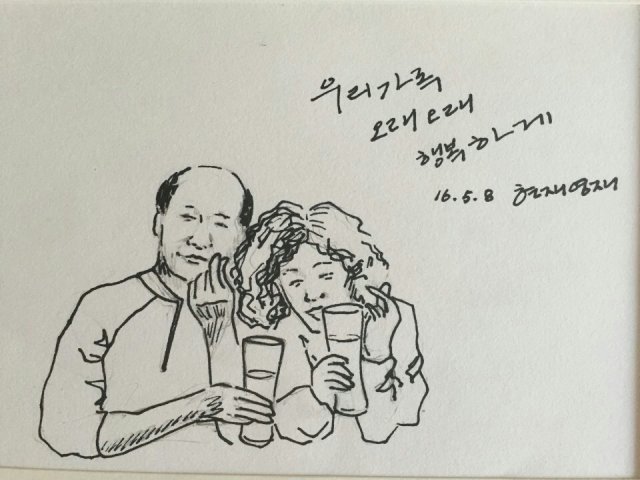 우리가족
오래오래
행복하게
16.5.8 현재영재